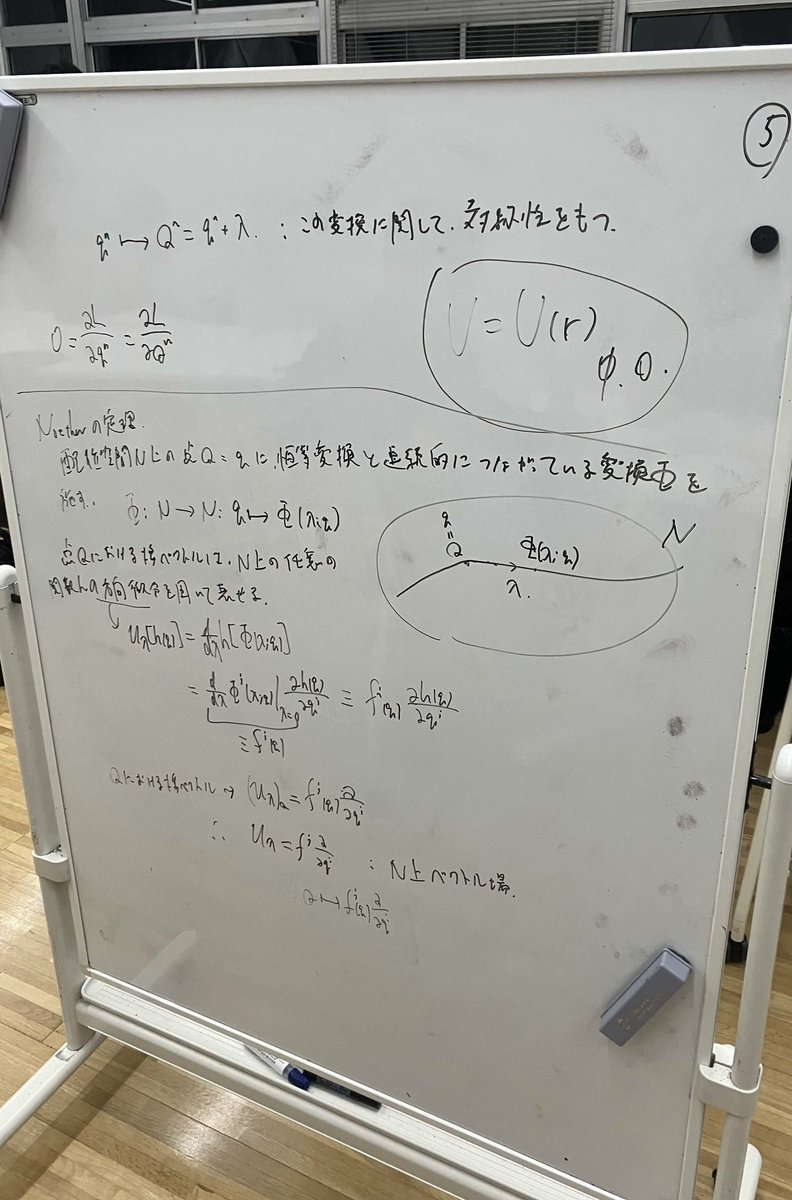 ⑤
qⁿ ↦ Qⁿ = qⁿ + λ. : この変換に関して、対称性をもつ.
0 = ∂L/∂qⁿ = ∂L/∂Qⁿ
U = U(r)
φ. θ.
Noetherの定理.
配位空間N上の点Q = qに、恒等変換と連続的につながっている変換Φを
施す. Φ: N → N: q ↦ Φ(λ;q)
点Qにおける接ベクトルは、N上の任意の
関数hの方向微分を用いて表せる.
q
=
Q Φ(λ;q) N
λ.
u_λ[h(q)] = d/dλ h[Φ(λ;q)]
= d/dλ Φⁱ(λ;q)|_{λ=0} ∂h(q)/∂qⁱ ≡ fⁱ(q) ∂h(q)/∂qⁱ
≡ fⁱ(q)
Qにおける接ベクトル → (u_λ)_Q = fⁱ(q) ∂/∂qⁱ
∴ u_λ = fⁱ ∂/∂qⁱ : N上ベクトル場.
Q ↦ fⁱ(q) ∂/∂qⁱ